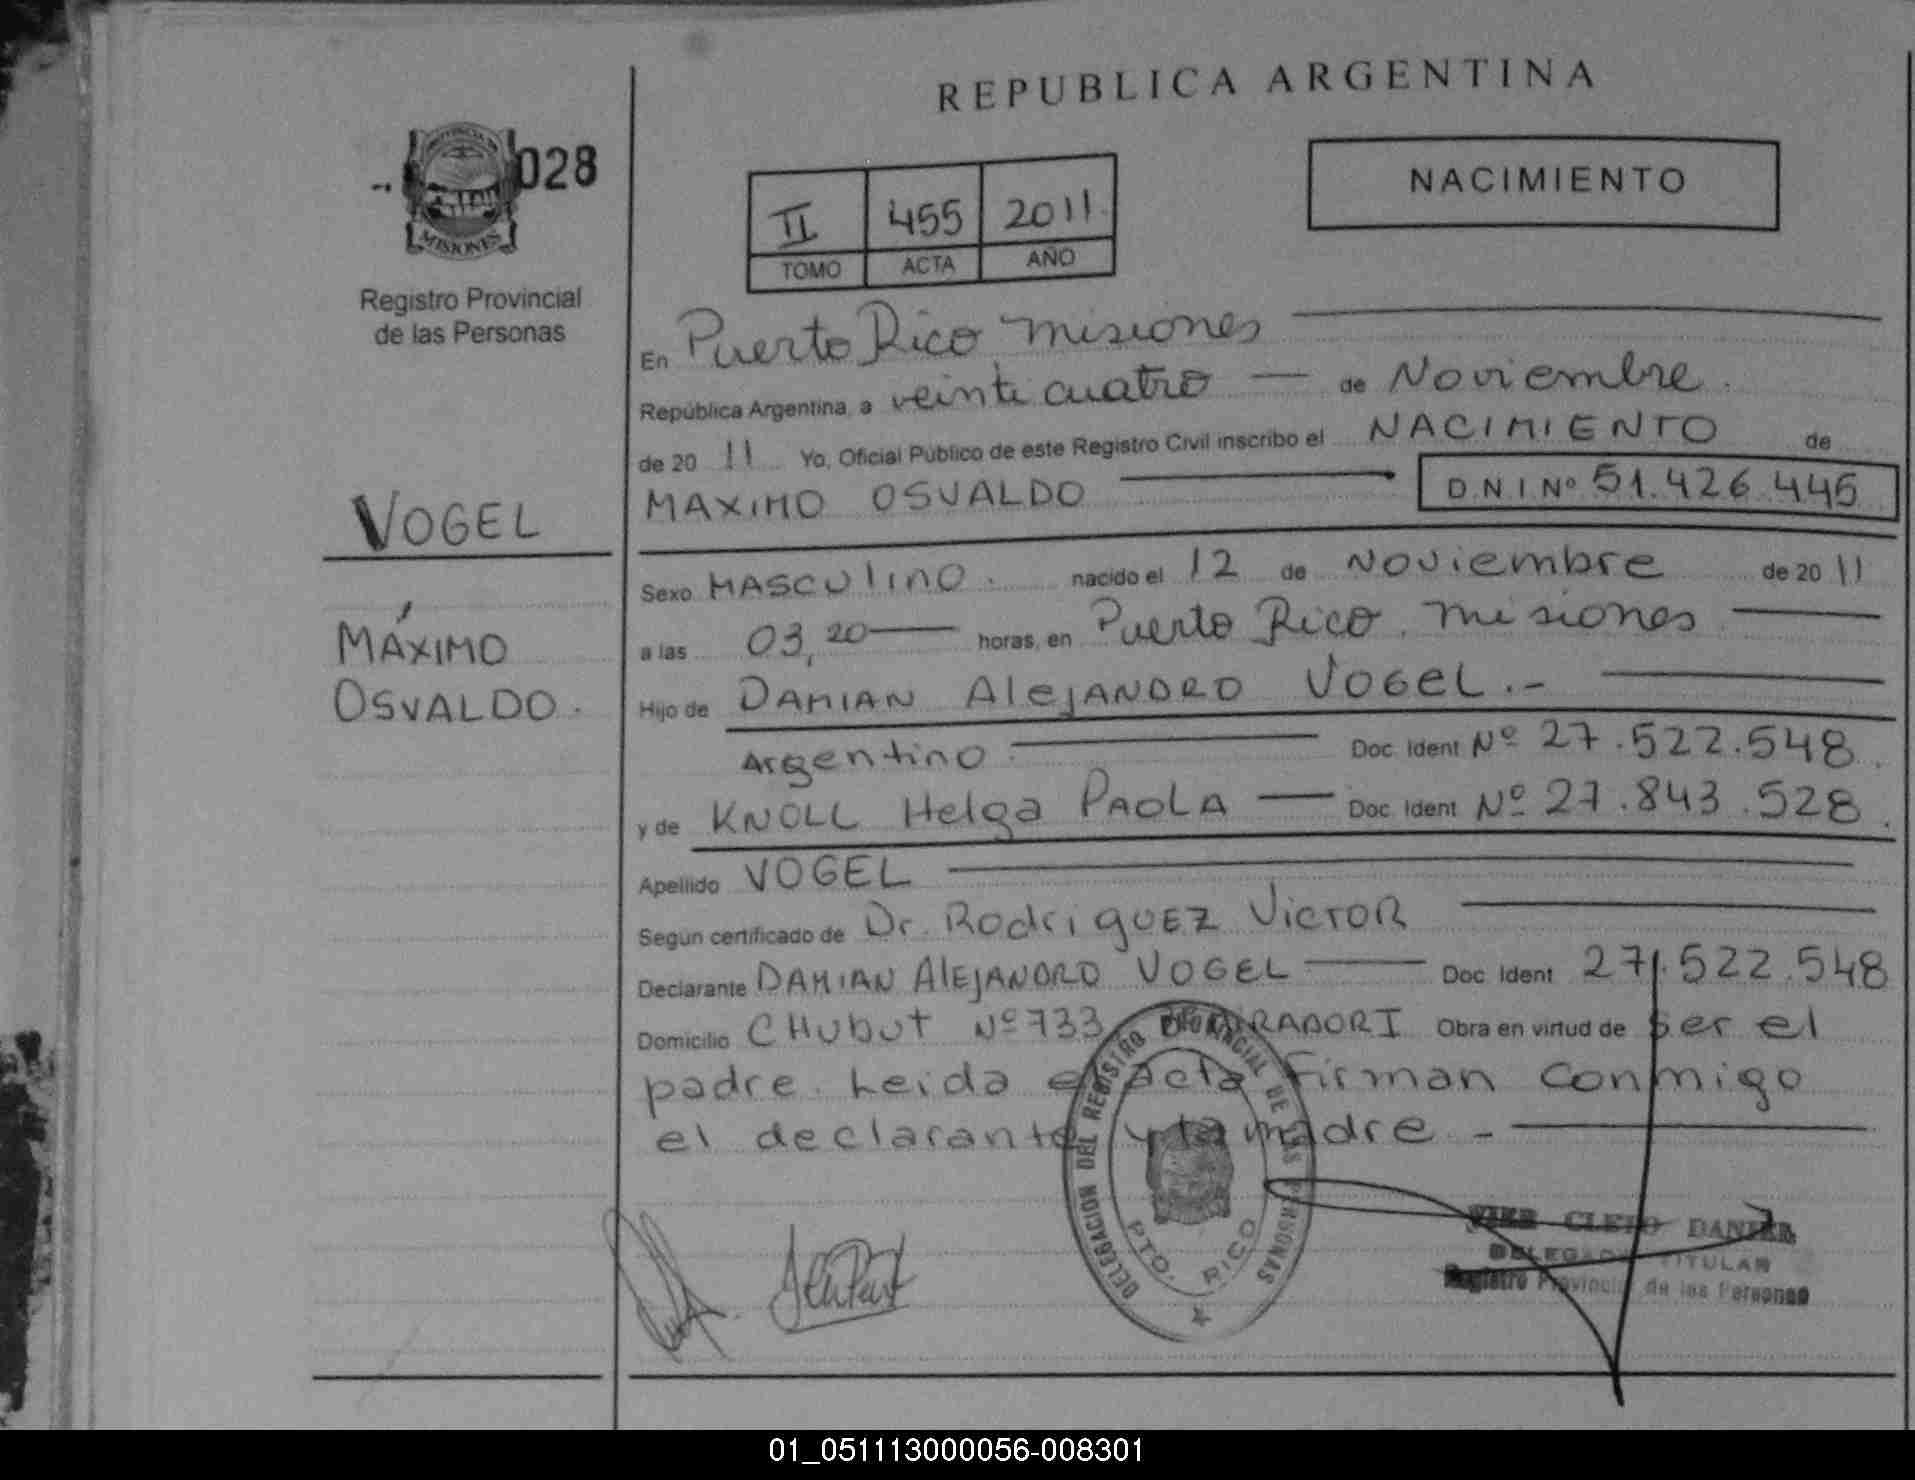 REPUBLICA ARGENTINA
NACIMIENTO
028
PROVINCIA DE
MISIONES
Registro Provincial
de las Personas
II 455 2011
TOMO ACTA AÑO
En Puerto Rico Misiones
República Argentina, a veinticuatro de Noviembre.
de 20 11 Yo, Oficial Público de este Registro Civil inscribo el NACIMIENTO de
MAXIMO OSVALDO D.N.I Nº 51.426.445
VOGEL
MÁXIMO
OSVALDO.
Sexo MASCULINO. nacido el 12 de Noviembre de 20 11
a las 03,20 horas, en Puerto Rico. Misiones
Hijo de DAMIAN AleJANDRO VOGEL.-
Argentino Doc. Ident Nº 27.522.548.
y de KNOLL Helga PAOLA Doc. Ident Nº 27.843.528.
Apellido VOGEL
Según certificado de Dr. Rodriguez Victor
Declarante DAMIAN AlEJANDRO VOGEL Doc. Ident 27.522.548
Domicilio CHUbUT Nº 733 Obra en virtud de ser el
padre. Leida el acta firman conmigo
el declarante y la madre -
DELEGACION DEL REGISTRO PROVINCIAL DE LAS PERSONAS
PTO. RICO
CLETO DANIEL
DELEGADO TITULAR
Registro Provincial de las Personas
01_051113000056-008301